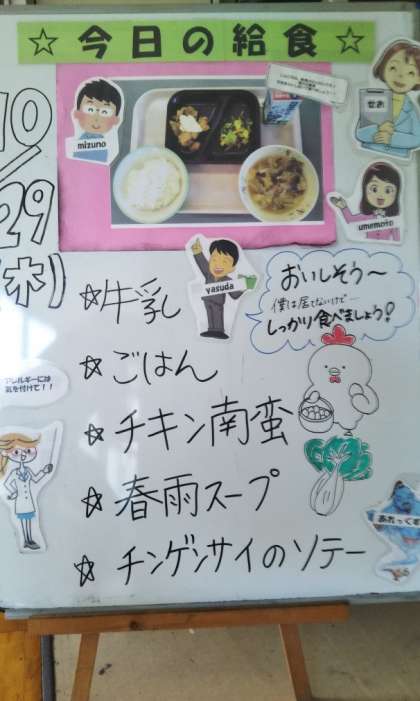 ☆今日の給食☆
せお
mizuno
umemoto
10/29
(木)
yasuda
おいしそう〜
僕は居てないけど…
しっかり食べましょう!
☆牛乳
☆ごはん
アレルギーには
気を付けて!!
☆チキン南蛮
☆春雨スープ
☆チンゲンサイのソテー